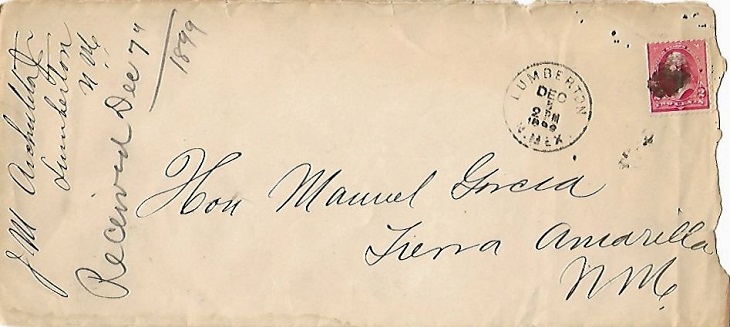 J M Archuleta Jr
Lumberton
N. M.
Received Dec 7th
1899
LUMBERTON
DEC
2 PM
1899
N. MEX.
2
TWO CENTS
Hon Manuel Garcia
Tierra Amarilla
N M.